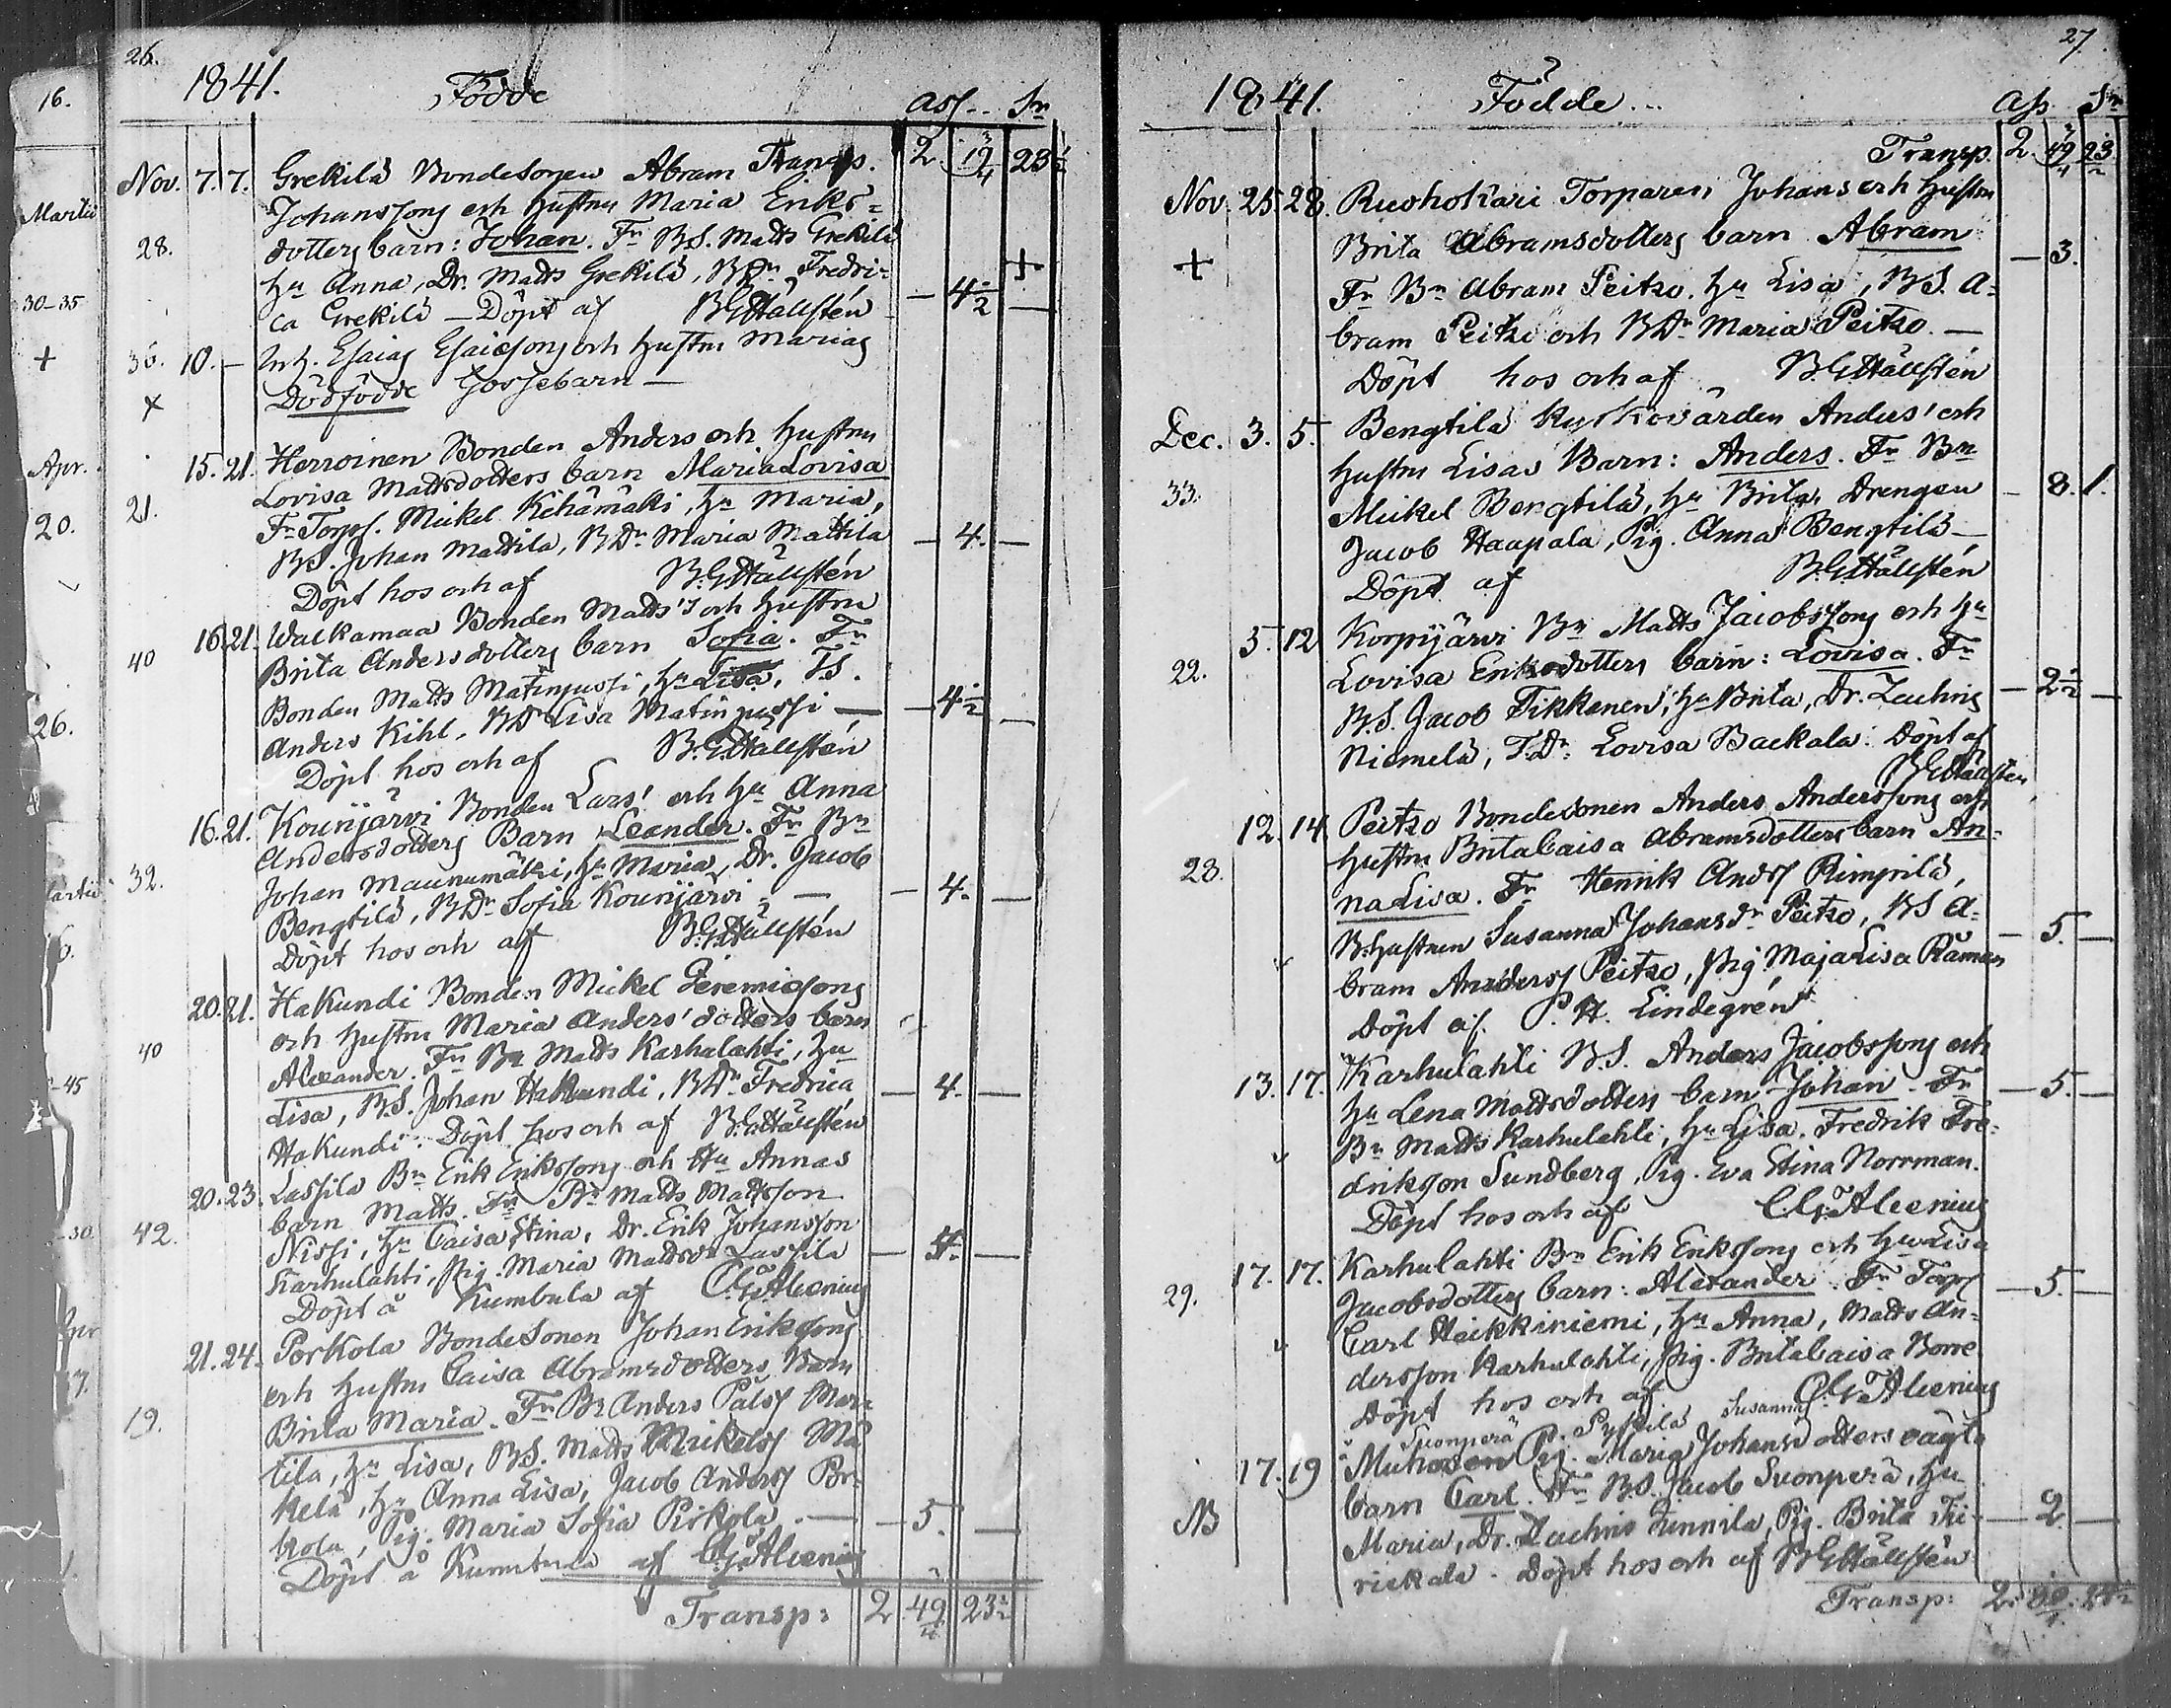 16.
Martii
30-35
+
Apr.
20.
26.
26.
1841. Födde ass.. Sr
Transp. 2. 19 3/4 23 1/2
Nov. 7. 7. Grekilä Bondesonen Abram
Johanssons och hustrus Maria Eriks=
28. dotters barn: Johan. Fr BS. Matts Grekilä
hu Anna, Dr. Matts Grekilä, BDr Fredri= +
ca Grekilä — Döpt af B:G:Hällstén — 4 1/2 —
36. 10. — Inh. Esaias Esaiesons och hustrus Marias
+ Dödfödde Gossebarn —
15. 21. Herroinen Bonden Anders och hustrus
Lovisa Mattsdotters barn Maria Lovisa
21. Fr Torps. Mickel Kihämäki, hu Maria,
BS. Johan Mattila, BDr Maria Mattila — 4. —
Döpt hos och af B:G:Hällstén
16. 21. Walkamaa Bonden Matts's och hustrus
40 Brita Andersdotters barn Sofia. Fr
Bonden Matts Matinjussi, hu Lisa, TS.
Anders Kihl, BDr Lisa Matinjussi — — 4 1/2 —
Döpt hos och af B:G:Hällstén
16. 21. Kounijärvi Bonden Lars' och hu Anna
Andersdotters Barn Leander. Fr Bn
32. Johan Maunumäki, hu Maria, Dr. Jacob
Bengtilä, BDr Sofia Kounijärvi — — 4. —
Döpt hos och af B:G:Hällstén
20. 21. Hakundi Bonden Mickel Jeremiesons
och hustrus Maria Anders'dotters barn
40 Alexander. Fr Bn Matts Karhulahti, hu
Lisa, BS. Johan Hakundi, BDr Fredrica — 4. —
Hakundi. Döpt hos och af B:G:Hällstén
20. 23. Lassila Bn Erik Erikssons och Hu Annas
barn Matts. Fr Bn Matts Mattsson
42. Nissi, hu Caisa Stina, Dr. Erik Johansson
Karhulahti, Pig. Maria Mattsdr Lassila — 4. —
Döpt å Kumbula af C.G. Alcenius
21. 24. Porkola Bondesonen Johan Erikssons
och hustrus Caisa Abramsdotters Barn
19. Brita Maria. Fr Bn Anders Pålss Mar=
tila, hu Lisa, BS. Matts Mickelss Mä
kelä, hu Anna Lisa, Jacob Anderss Por=
kola, Pig. Maria Sofia Pirkola. — — 5. —
Döpt å Kumbula af C.G. Alcenius
Transp: 2 49 3/4 23 1/2
27.
1841. Födde... Ass Sr
Transp. 2. 49 3/4 23 1/2
Nov. 25. 28. Ruohokari Torparen Johans och hustrus
Brita Abramsdotters barn Abram — 3.
+ Fr Bn Abram Peitso. hu Lisa, BS. A=
bram Peitso och BDr Maria Peitso —
Döpt hos och af B:G:Hällstén
Dec. 3. 5. Bengtilä Kyrkovärden Anders' och
hustrus Lisas Barn: Anders. Fr Bn
33. Mickel Bengtilä, hu Brita, Drengen — 8. 1.
Jacob Haapala, Pig. Anna Bengtilä —
Döpt af B:G:Hällstén
5. 12 Korpijärvi Bn Matts Jacobssons och hu
22. Lovisa Eriksdotters barn: Lovisa. Fr
BS. Jacob Tikkanen, hu Brita, Dr. Zachris — 2 1/2 —
Niemelä, TDr. Lovisa Backala. Döpt af
B:G:Hällstén
12. 14. Peitso Bondesonen Anders Anderssons och
hustrus Brita Caisa Abramsdotters barn An=
23. na Lisa. Fr Henrik Anders Rimpilä,
Bhustrun Susanna Johansdr Peitso, BS A= — 5. —
bram Anderss Peitso, Pig Maja Lisa Råman
Döpt af P. H. Lindegrén
13. 17. Karhulahti BS. Anders Jacobssons och
hu Lena Mattsdotters barn Johan. Fr — 5. —
Bn Matts Karhulahti, hu Lisa. Fredrik Fre=
driksson Sundberg, Pig. Eva Stina Norrman.
Döpt hos och af C.G. Alcenius
17. 17. Karhulahti Bn Erik Erikssons och hu Lisa
29. Jacobsdotters barn: Alexander. Fr Torps — 5. —
Carl Heikkiniemi, hu Anna, Matts An=
dersson Karhulahti, Pig. Brita Caisa Borre
Döpt hos och af C.G. Alcenius
Suonperä P. Pyssilä Susanna
17. 19 Muhonen Pig. Maria Johansdotters oägta
NB barn Carl. Fr BS. Jacob Suonperä, hu
Maria, Dr. Zachris Junnila, Pig. Brita Fi — 2 —
rickala. Döpt hos och af B:G:Hällstén
Transp: 2. 80 1/4 24 1/2